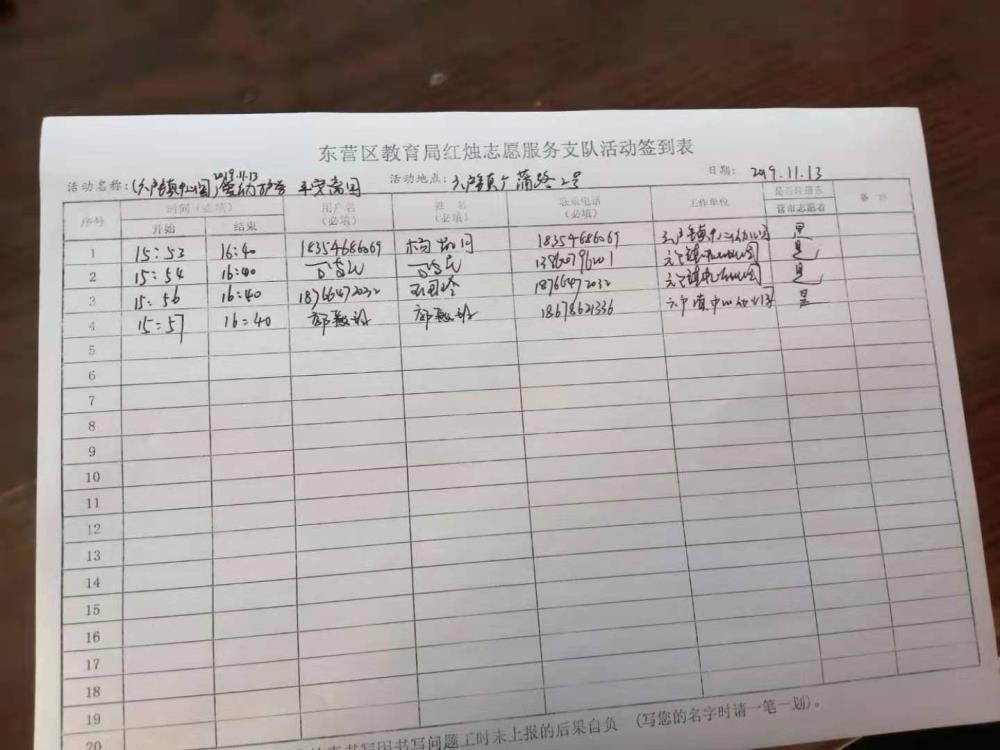 东营区教育局红烛志愿服务支队活动签到表
活动名称：(六户镇中心园) 2019.11.13 平安离园 活动地点：六户镇广蒲路2号 日期：2019.11.13
序号 时间（必填） 用户名（必填） 姓名（必填） 联系电话（必填） 工作单位 是否注册东营市志愿者 备注
开始 结束
1 15:53 16:40 18354686069 18354686069 六户镇中心幼儿园 是
2 15:54 16:40 六户镇中心幼儿园 是
3 15:56 16:40 18766472032 18766472032 六户镇中心幼儿园 是
4 15:57 16:40 18678621336 六户镇中心幼儿园 是
5
6
7
8
9
10
11
12
13
14
15
16
17
18
19
20
书写问题工时未上报的后果自负 （写您的名字时请一笔一划）。